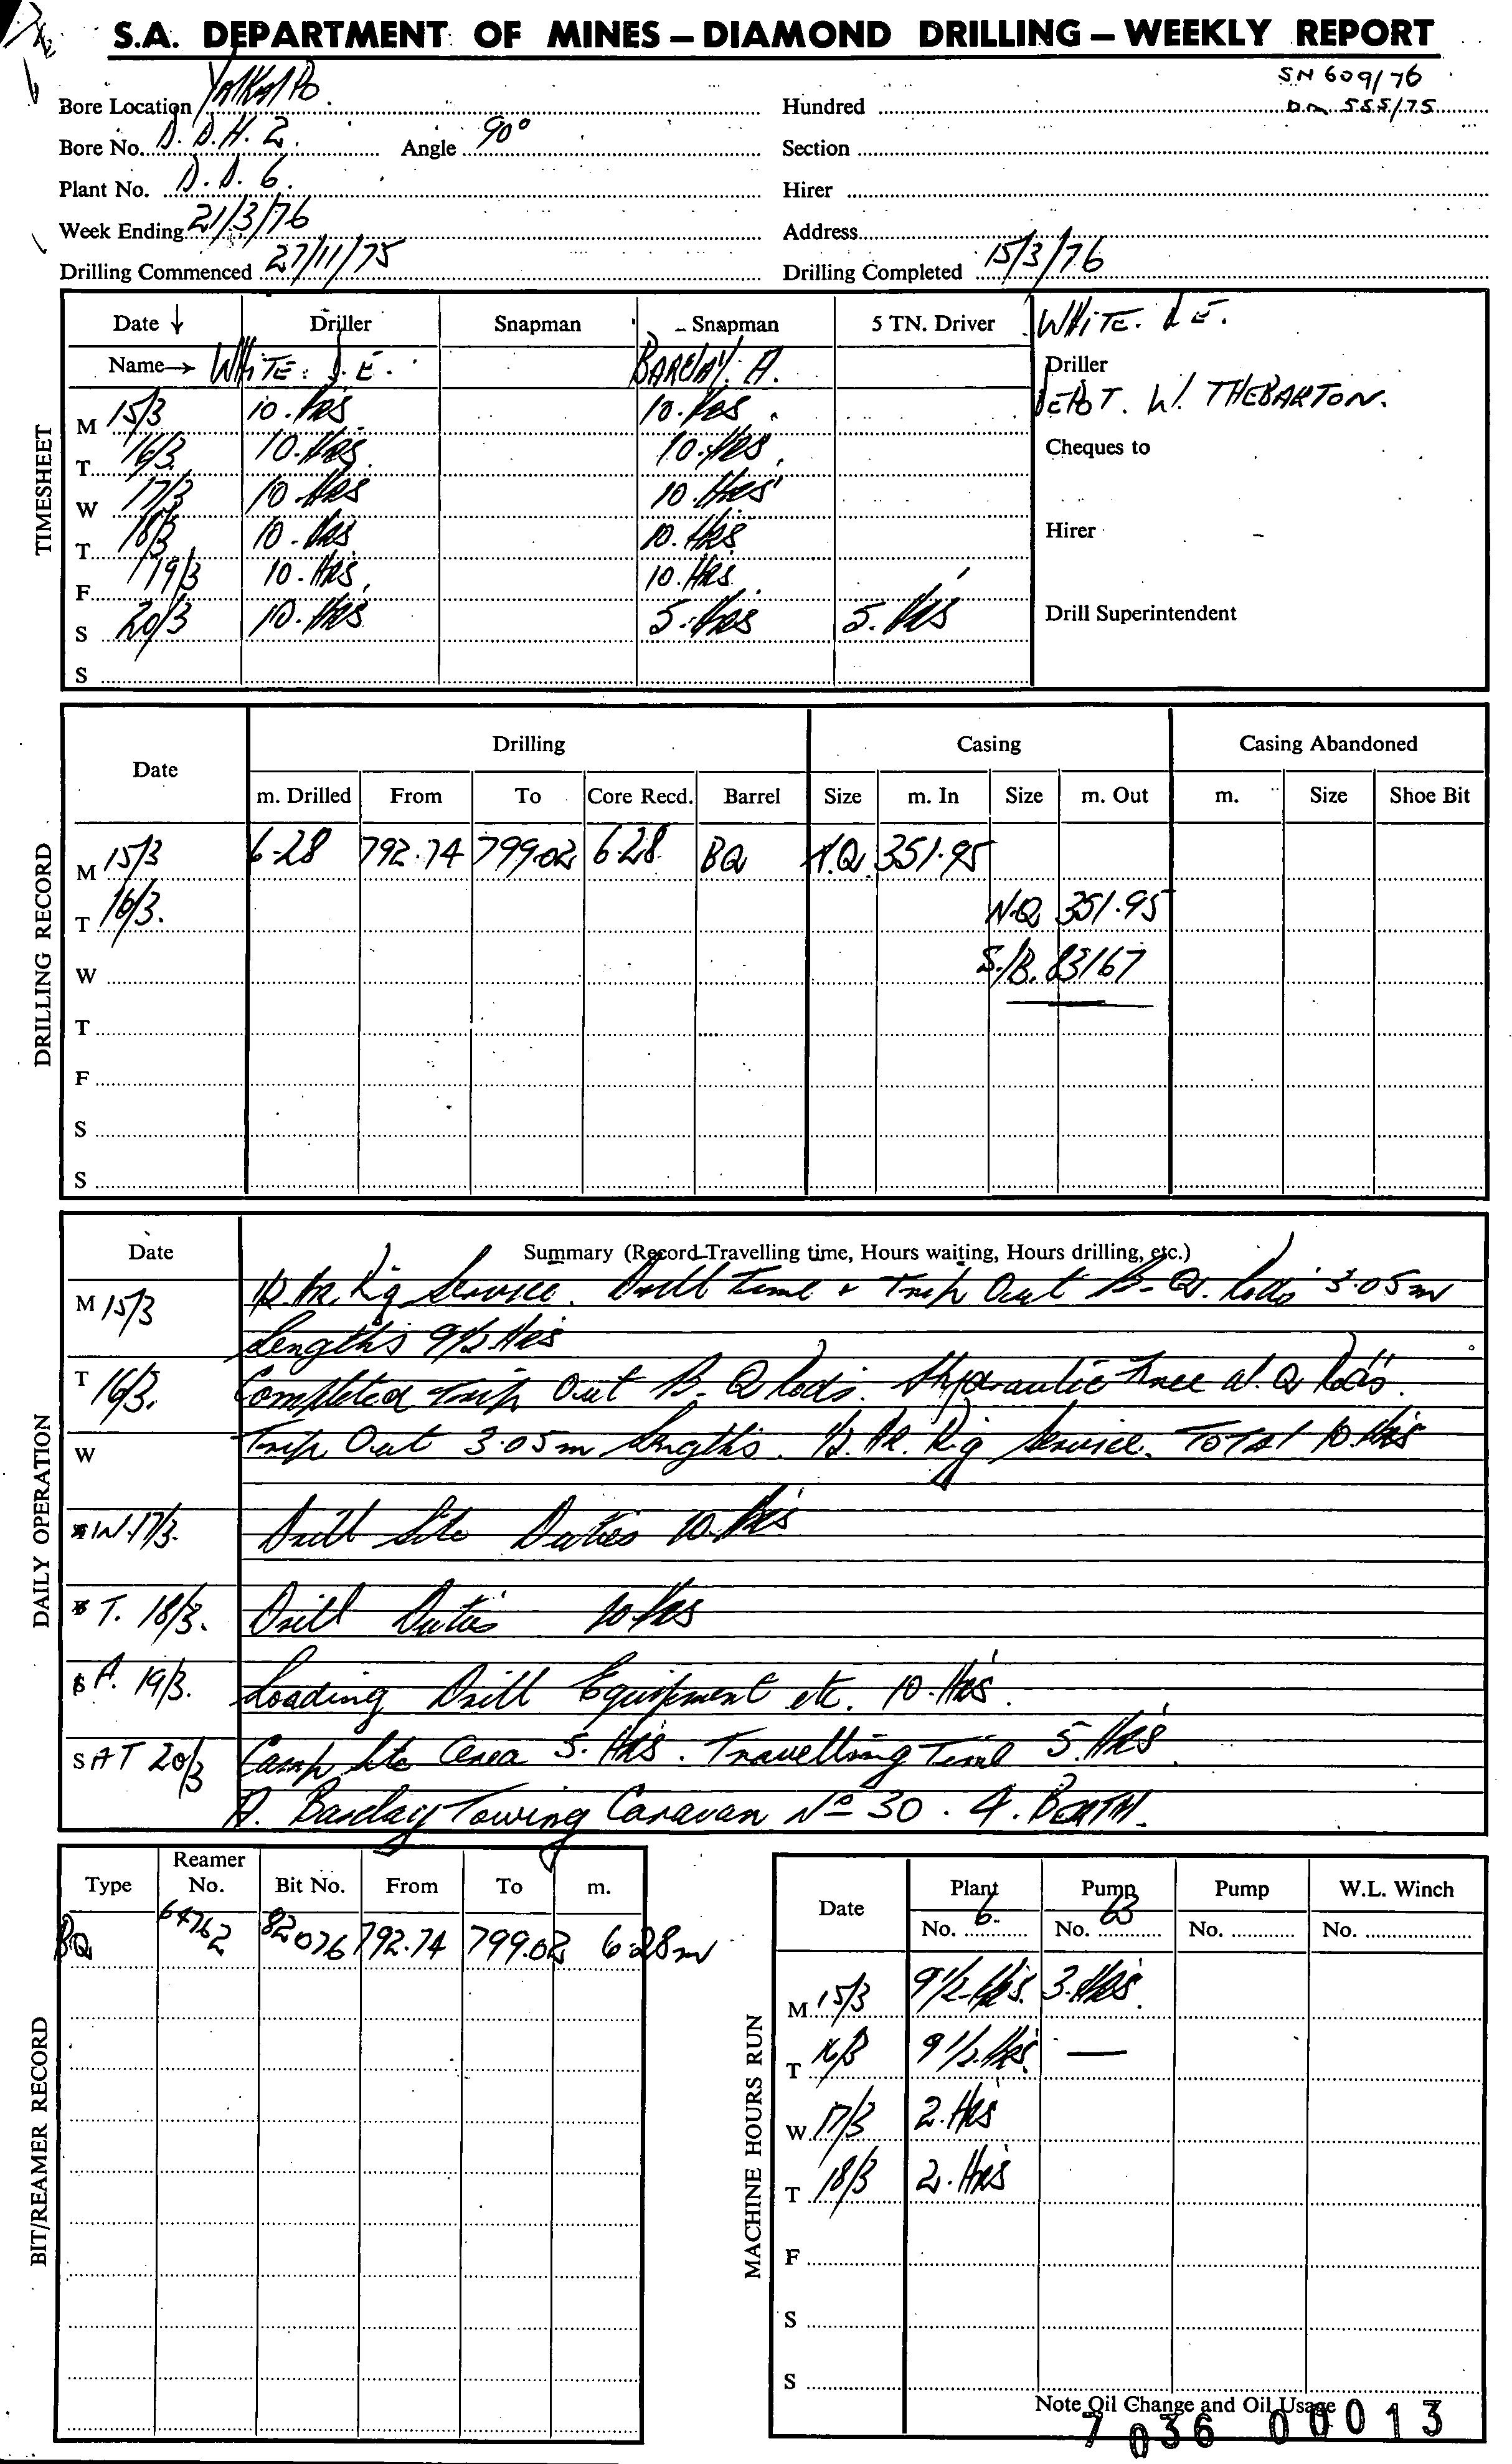 S.A. DEPARTMENT OF MINES – DIAMOND DRILLING – WEEKLY REPORT
SN 609/76
Bore Location Yalkalpo. Hundred DM 555/75
Bore No. D.D.H. 2. Angle 90° Section
Plant No. D.D. 6. Hirer
Week Ending 21/3/76 Address
Drilling Commenced 27/11/75 Drilling Completed 15/3/76
TIMESHEET
Date ↓ Driller Snapman Snapman 5 TN. Driver WHITE. D E.
Name→ WHITE. D. E. BARCLAY. A. Driller
M 15/3 10. Hrs 10. Hrs. DEPOT. W. THEBARTON.
T 16/3 10. Hrs. 10. Hrs. Cheques to
W 17/3 10. Hrs 10. Hrs
T 18/3 10. Hrs 10. Hrs Hirer
F 19/3 10. Hrs. 10. Hrs.
S 20/3 10. Hrs 5. Hrs 5. Hrs Drill Superintendent
S
DRILLING RECORD
Date Drilling Casing Casing Abandoned
m. Drilled From To Core Recd. Barrel Size m. In Size m. Out m. Size Shoe Bit
M 15/3 6.28 792.74 799.02 6.28 BQ N.Q. 351.95
T 16/3. N.Q 351.95
W S./B. 83167
T
F
S
S
DAILY OPERATION
Date Summary (Record Travelling time, Hours waiting, Hours drilling, etc.)
M 15/3 1/2. Hr. Rig Service. Drill time & Trip Out B.Q. Rods 3.05m
Lengths 9 1/2 Hrs
T 16/3. Completed Trip Out B.Q Rods. Hydraulic Free N.Q Rods.
W Trip Out 3.05m Lengths. 1/2. Hr. Rig Service. Total 10. Hrs
W. 17/3. Drill Site Duties 10. Hrs
T. 18/3. Drill Duties 10 Hrs
F. 19/3. Loading Drill Equipment etc. 10. Hrs.
SAT 20/3 Camp Site Area 5. Hrs. Travelling Time 5. Hrs.
A. Barclay Towing Caravan No 30. 4. BERTH.
BIT/REAMER RECORD
Type Reamer No. Bit No. From To m.
BQ 64762 82076 792.74 799.02 6.28m
MACHINE HOURS RUN
Date Plant Pump Pump W.L. Winch
No. 6. No. 63 No. No.
M 15/3 9 1/2. Hrs. 3. Hrs.
T 16/3 9 1/2. Hrs. —
W 17/3 2. Hrs
T 18/3 2. Hrs
F
S
S
Note Oil Change and Oil Usage
7036 00013